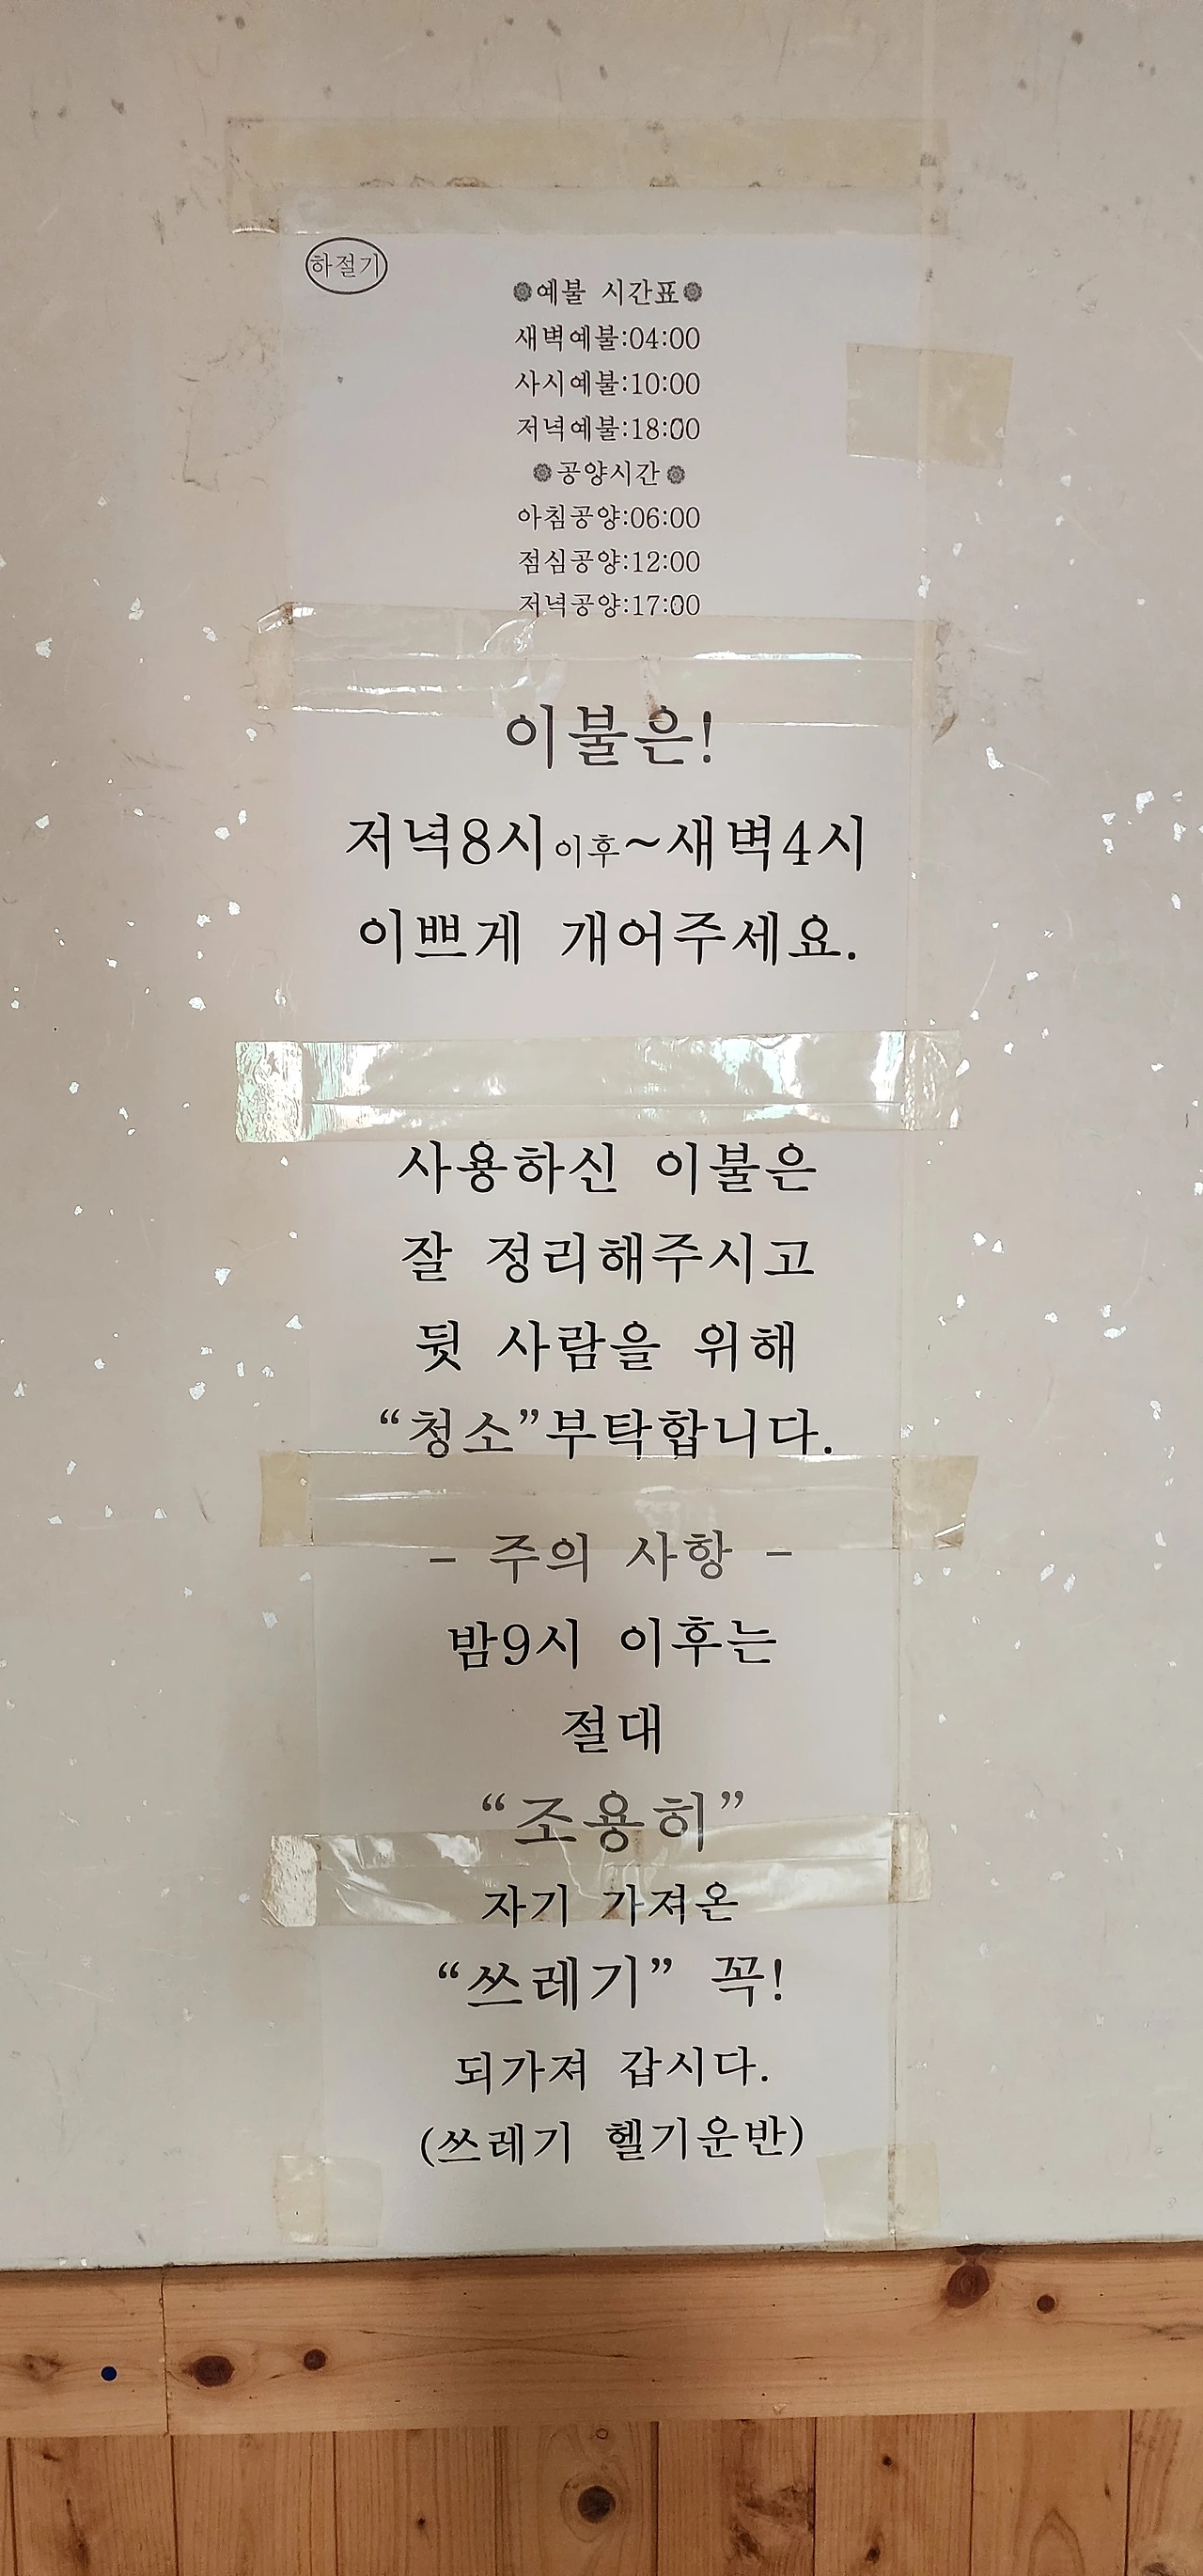 하절기
예불 시간표
새벽예불:04:00
사시예불:10:00
저녁예불:18:00
공양시간
아침공양:06:00
점심공양:12:00
저녁공양:17:00
이불은!
저녁8시이후~새벽4시
이쁘게 개어주세요.
사용하신 이불은
잘 정리해주시고
뒷 사람을 위해
“청소”부탁합니다.
- 주의 사항 -
밤9시 이후는
절대
“조용히”
자기 가져온
“쓰레기” 꼭!
되가져 갑시다.
(쓰레기 헬기운반)